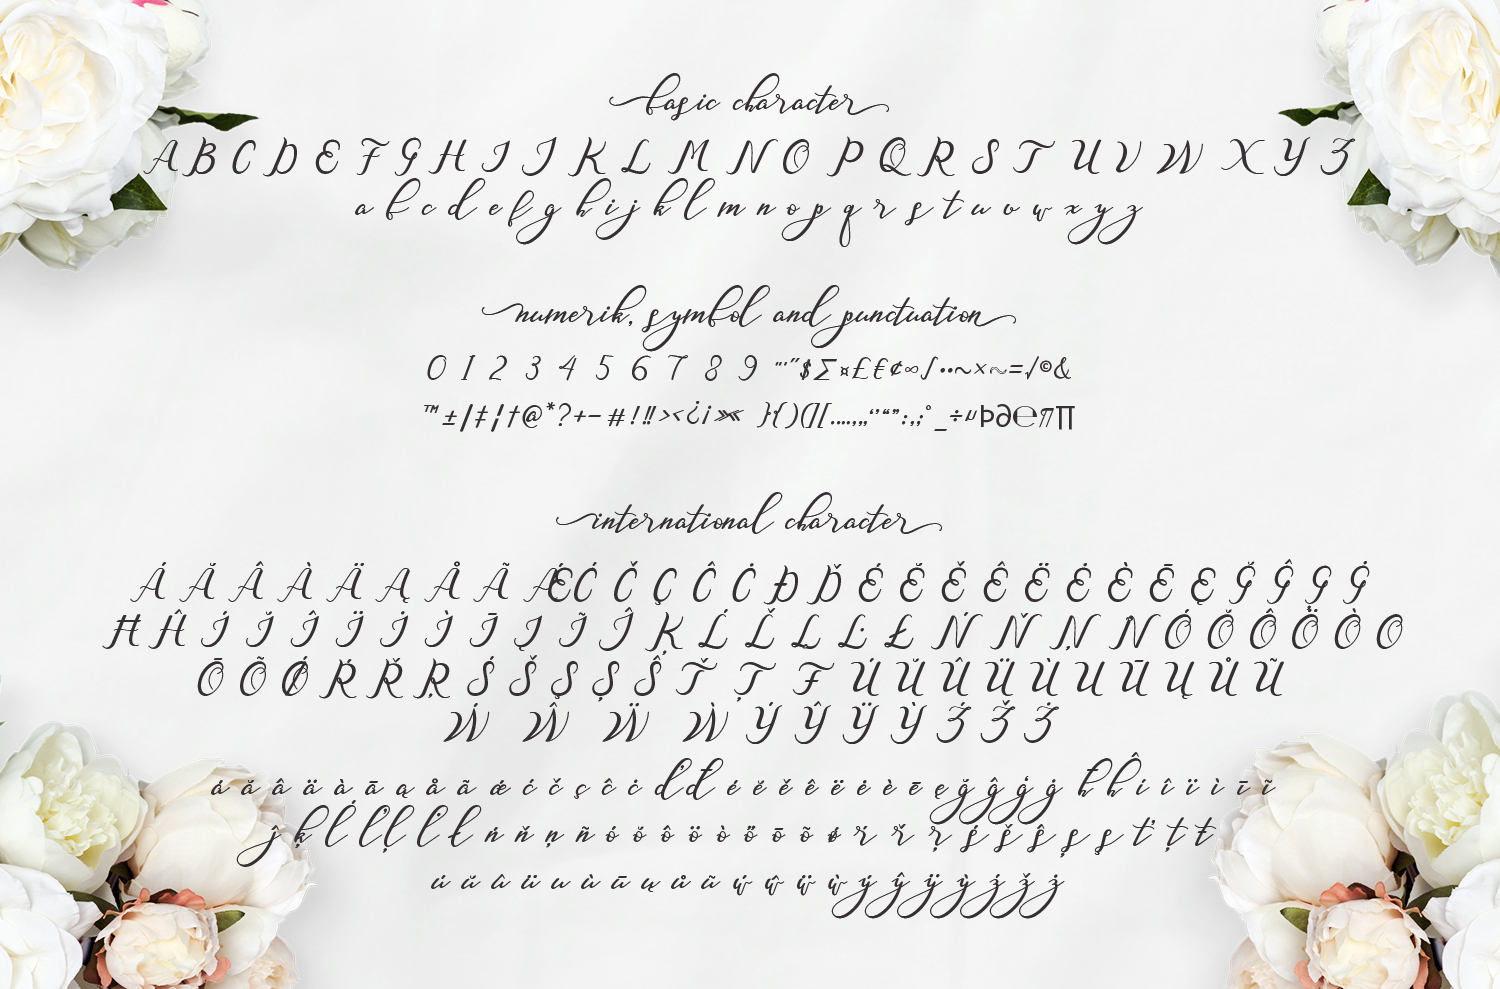 basic character
A B C D E F G H I J K L M N O P Q R S T U V W X Y Z
a b c d e f g h i j k l m n o p q r s t u v w x y z
numerik, symbol and punctuation
0 1 2 3 4 5 6 7 8 9 "'"$∑¤£€¢∞∫••~×~=√©&
™±/|‡¦†@*?+-#!!!><¿¡»« }{)(][.…,„‘’“”:,;°_÷µÞ∂℮π∏
international character
Á Ă Â À Ä Ą Å Ã Æ Ć Č Ç Ĉ Ċ Đ Ď É Ĕ Ě Ê Ë Ė È Ē Ę Ğ Ĝ Ģ Ġ
Ħ Ĥ Í Ĭ Î Ï İ Ì Ī Į Ĩ Ĵ Ķ Ĺ Ľ Ļ Ŀ Ł Ń Ň Ņ Ñ Ó Ŏ Ô Ö Ò O
Ō Õ Ø Ŕ Ř Ŗ Ś Š Ş Ș Ŝ Ť Ț Ŧ Ú Ŭ Û Ü Ù U Ū Ų Ů Ũ
Ẃ Ŵ Ẅ Ẁ Ý Ŷ Ÿ Ỳ Ź Ž Ż
á ă â ä à ā ą å ã æ ć č ç ĉ ċ ď đ é ĕ ě ê ë ė è ē ę ğ ĝ ģ ġ ħ ĥ í î ï ì ī ĩ
ĵ ķ ĺ ľ ļ ŀ ł ń ň ņ ñ ó ŏ ô ö ò ő ō õ ø ŕ ř ŗ ś š ŝ ș ş ť ț ŧ
ú ŭ û ü u ù ū ų ů ũ ẃ ŵ ẅ ẁ ý ŷ ÿ ỳ ź ž ż